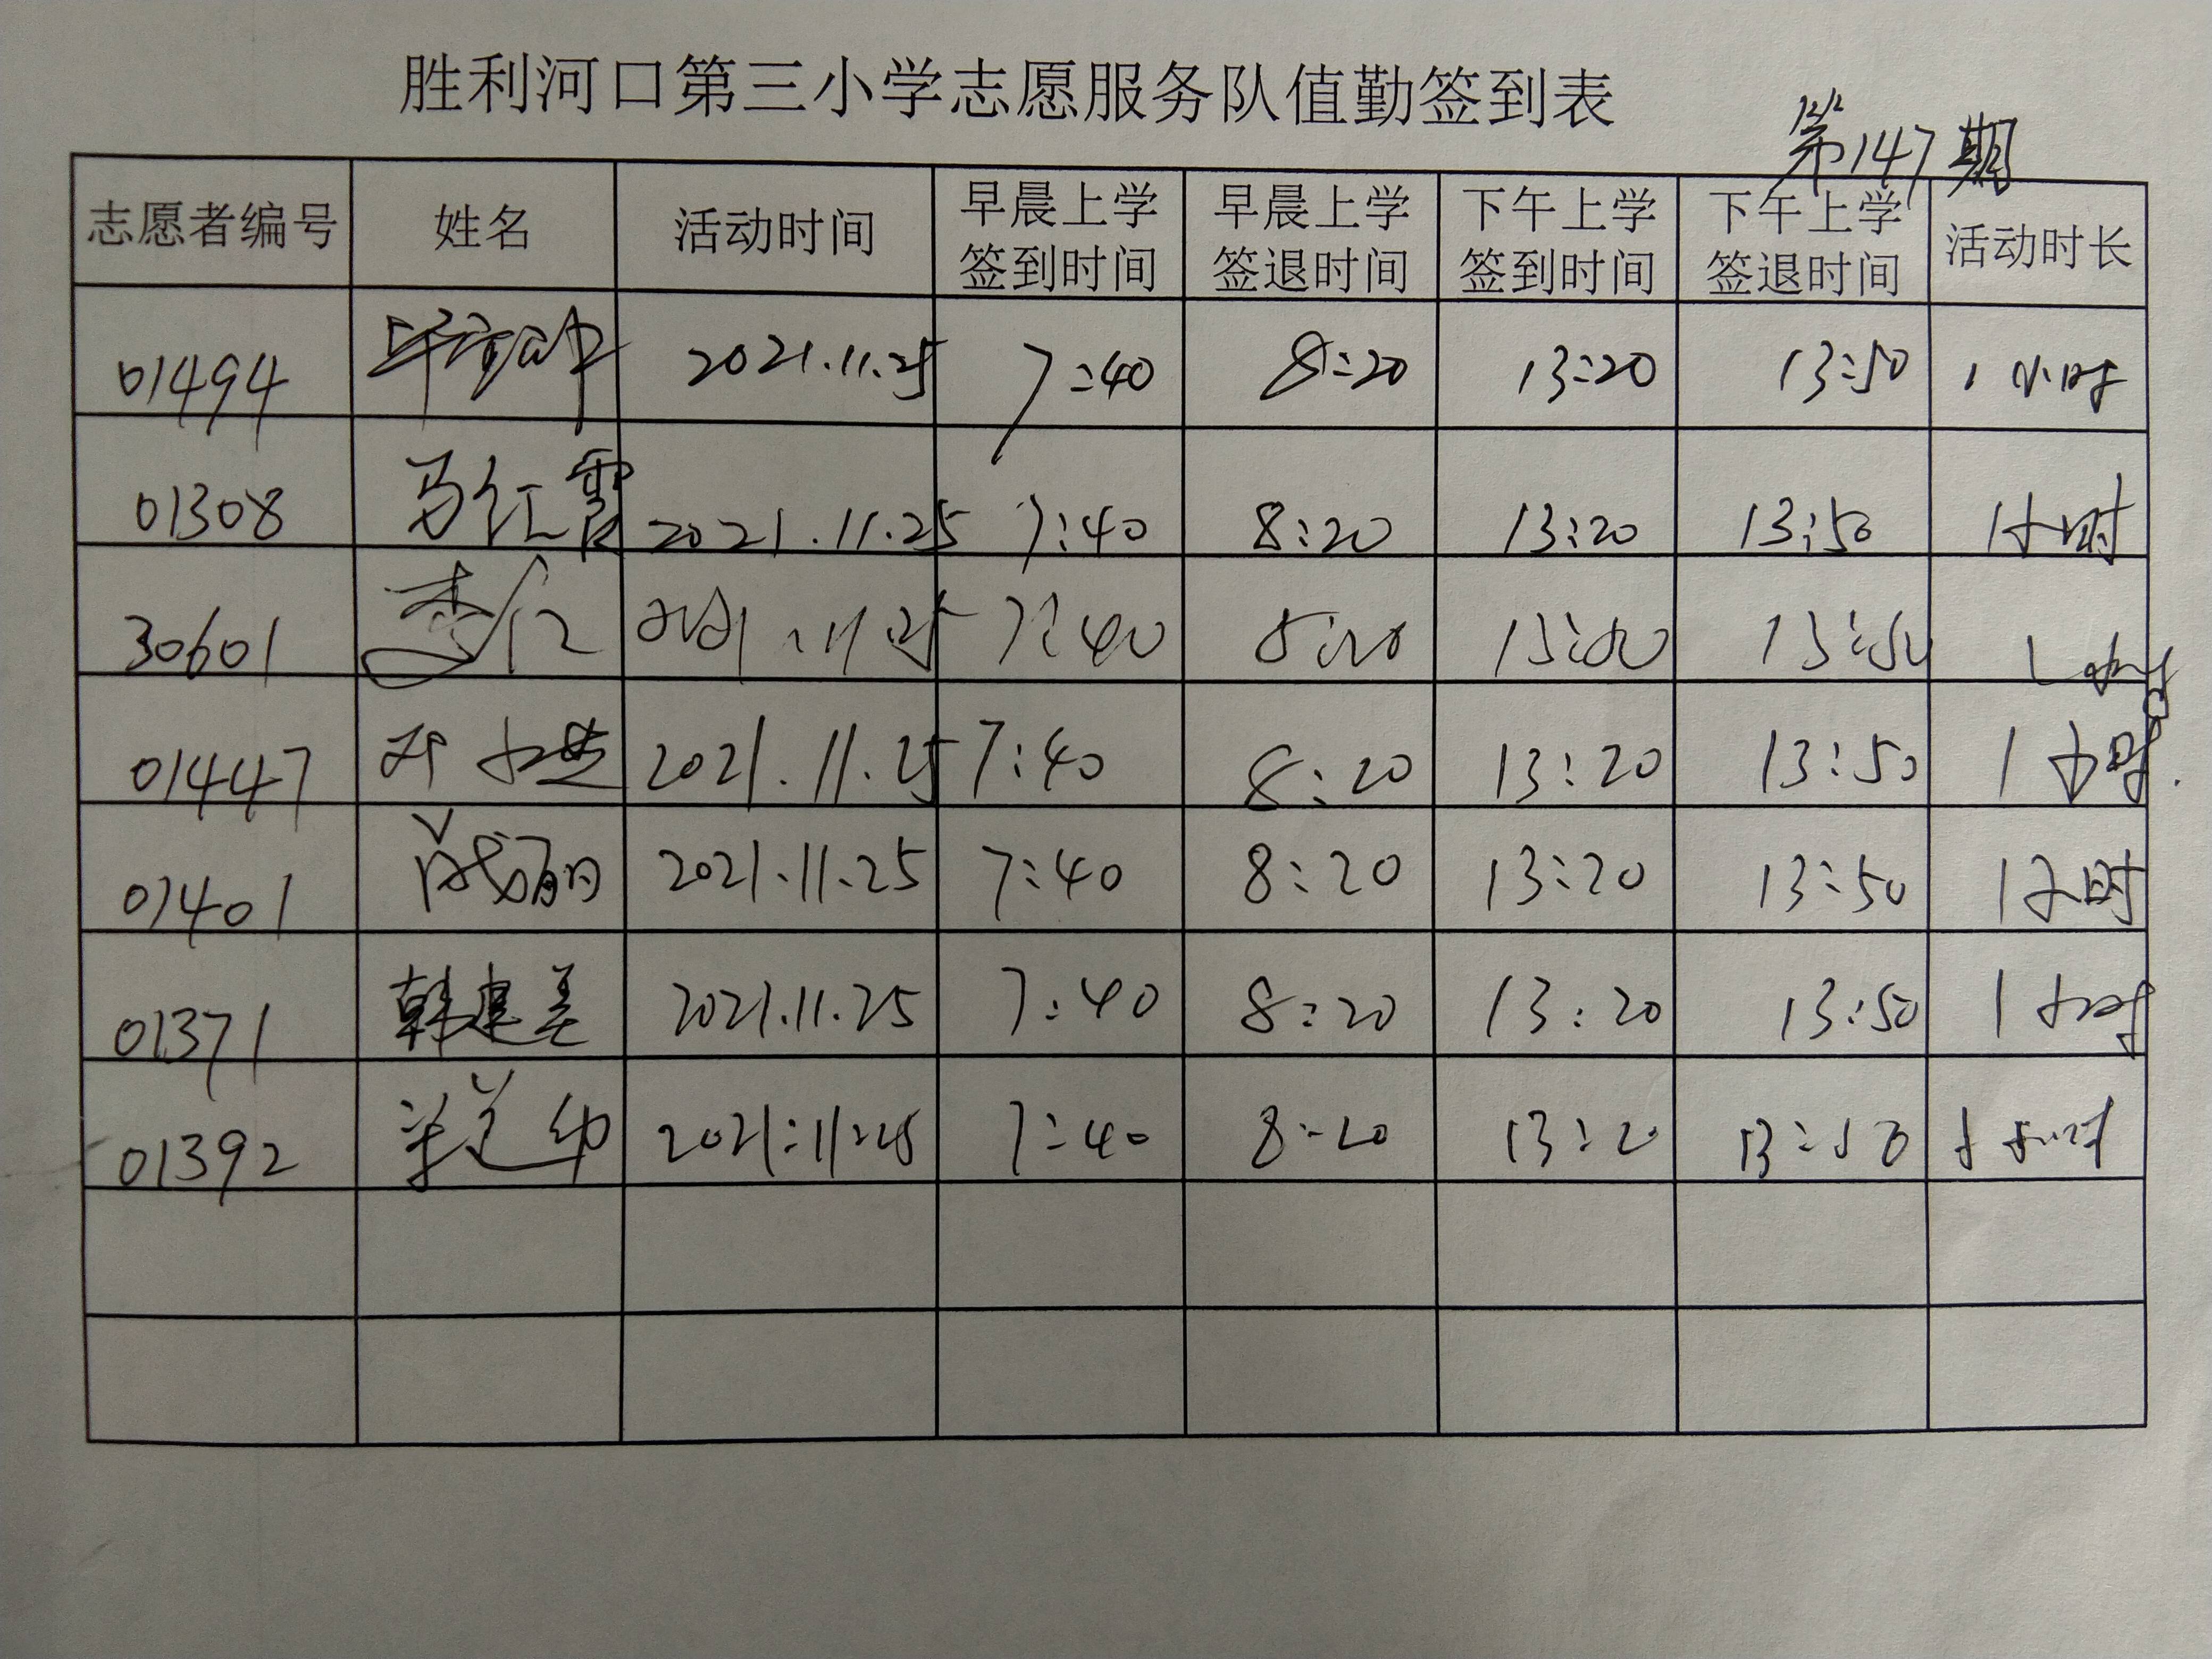 胜利河口第三小学志愿服务队值勤签到表
第147期
志愿者编号 姓名 活动时间 早晨上学签到时间 早晨上学签退时间 下午上学签到时间 下午上学签退时间 活动时长
01494 2021.11.25 7:40 8:20 13:20 13:50 1小时
01308 马红霞 2021.11.25 7:40 8:20 13:20 13:50 1小时
30601 2021.11.25 7:40 8:20 13:20 13:50 1小时
01447 2021.11.25 7:40 8:20 13:20 13:50 1小时
01401 2021.11.25 7:40 8:20 13:20 13:50 1小时
01371 韩建美 2021.11.25 7:40 8:20 13:20 13:50 1小时
01392 2021:11:25 7:40 8:20 13:20 13:50 1小时